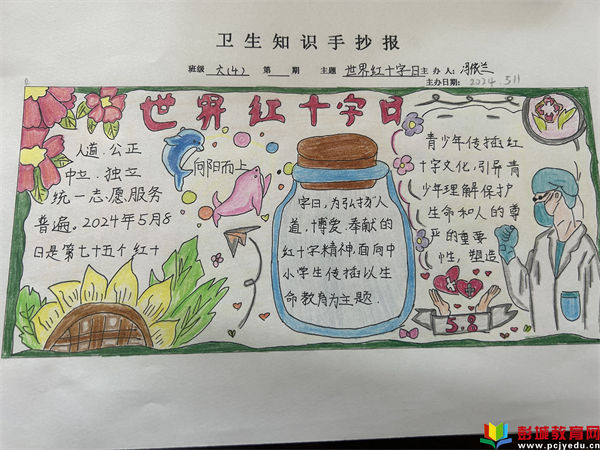 卫生知识手抄报
班级 六(4) 第 期 主题 世界红十字日 主办人:
主办日期: 2024.5.11
世界红十字日
人道、公正
中立、独立
统一志愿服务
普遍。2024年5月8
日是第七十五个红十
向阳而上
字日,为弘扬"人
道、博爱、奉献的
红十字精神,面向中
小学生传播以生
命教育为主题.
青少年传播红
十字文化,引导青
少年理解保护
生命和人的尊
严的重要
性,塑造
5.8
彭城教育网
www.pcjyedu.cn